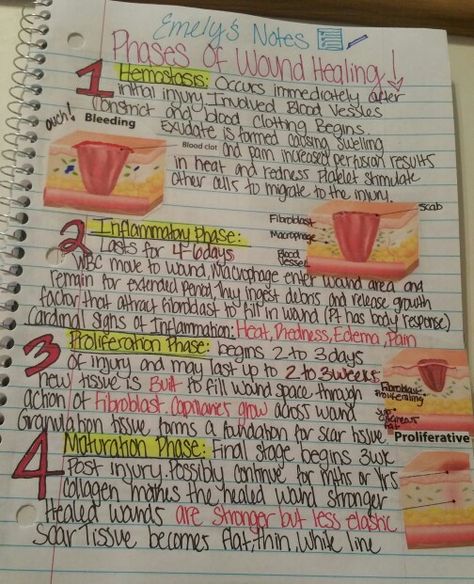 Emely's Notes
Phases Of Wound Healing!
1 Hemostasis: Occurs immediately after
initial injury. Involved Blood Vessles
Constrict and blood Clotting Begins
Exudate is formed causing swelling
and pain increased perfusion results
in heat and redness Platelet stimulate
other cells to migrate to the injury.
ouch! Bleeding
Blood clot
2 Inflammatory Phase:
Lasts for 4-6 days
WBC move to wound, Macrophage enter wound area and
remain for extended period, They ingest debris and release growth
factor that attract fibroblast to fill in wound (Pt has body response)
Cardinal Signs of Inflammation: Heat, Redness, Edema, Pain
Scab
Fibroblast
Macrophage
Blood
Vessel
3 Proliferation Phase: begins 2 to 3 days
of injury and may last up to 2 to 3 weeks,
new tissue is Built to fill wound space through
action of Fibroblast. Capillaries grow across wound
Granulation tissue forms a foundation for scar tissue
Fibroblast
Proliferating
Fat
Proliferative
4 Maturation Phase: Final stage begins 3wk
Post injury. Possibly continue for mths or yrs
Collagen makes the healed wound stronger
Healed wounds are stronger but less elastic
Scar Tissue becomes flat, thin, white line